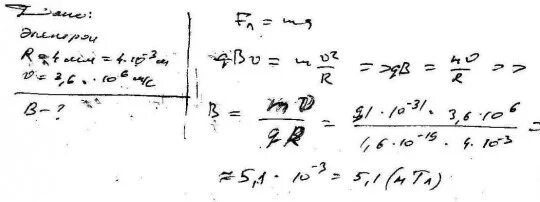 Дано:
электрон
R = 4 мм = 4·10⁻³ м
v = 3,6 · 10⁶ м/с
B - ?
Fл = ma
qBv = m v²/R => qB = mv/R =>
B = mv/qR = 9,1·10⁻³¹ · 3,6·10⁶ / 1,6·10⁻¹⁹ · 4·10⁻³ =
≈ 5,1 · 10⁻³ = 5,1 (мТл)